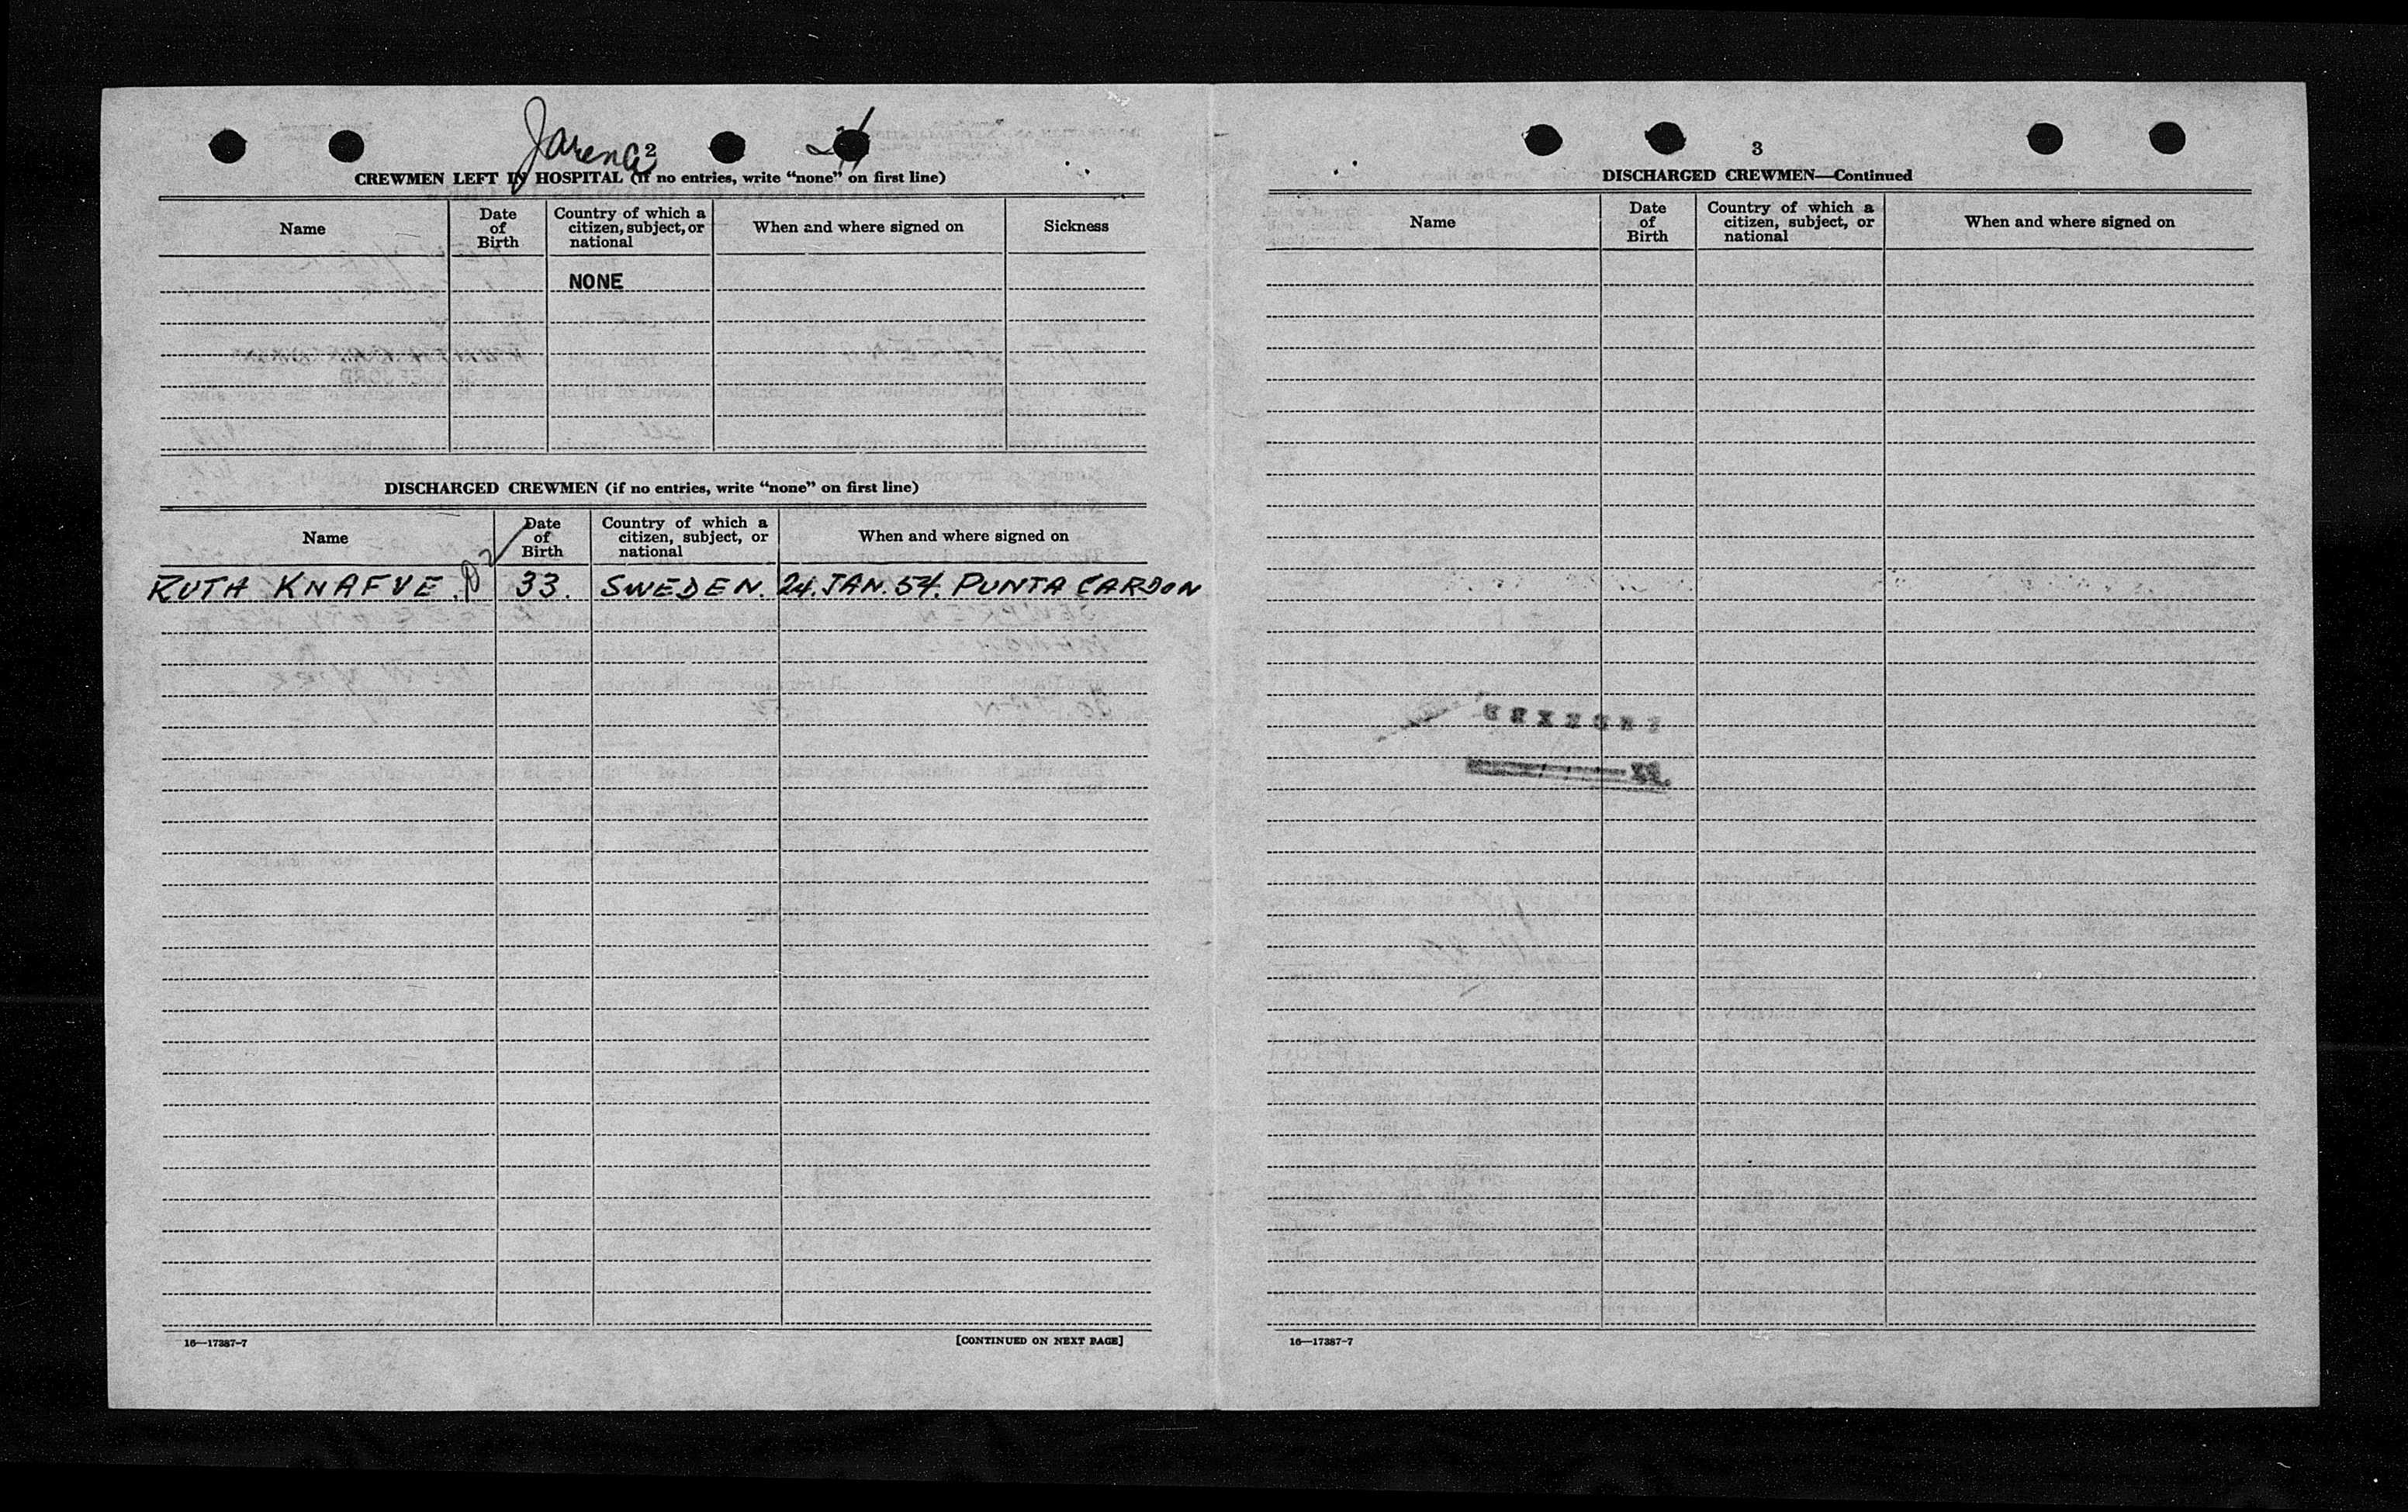 Jarena
2
CREWMEN LEFT IN HOSPITAL (if no entries, write "none" on first line)
Name
Date of Birth
Country of which a citizen, subject, or national
When and where signed on
Sickness
NONE
DISCHARGED CREWMEN (if no entries, write "none" on first line)
Name
Date of Birth
Country of which a citizen, subject, or national
When and where signed on
RUTH KNAFVE. 33. SWEDEN. 24. JAN. 54. PUNTA CARDON
16—17387-7
[CONTINUED ON NEXT PAGE]
3
DISCHARGED CREWMEN—Continued
Name
Date of Birth
Country of which a citizen, subject, or national
When and where signed on
16—17387-7